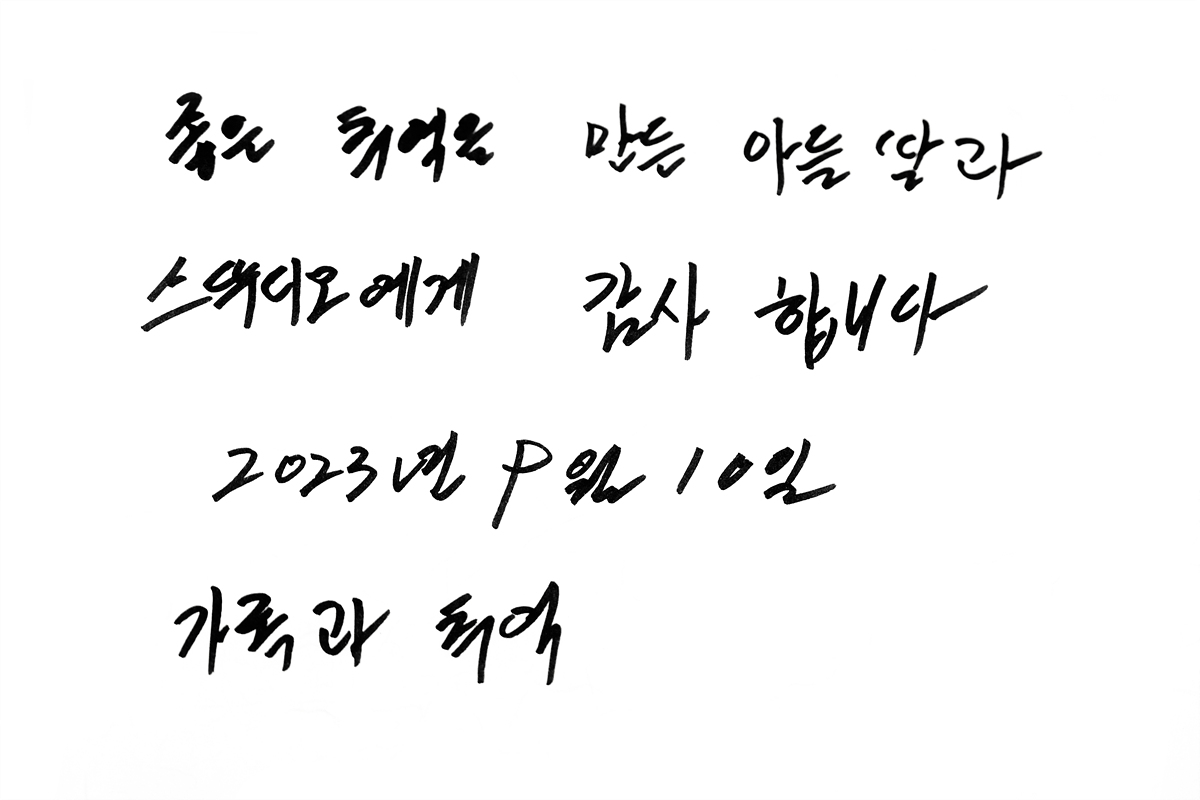 좋은 추억을 만든 아들 딸과
스튜디오에게 감사 합니다
2023년 9월 10일
가족과 추억